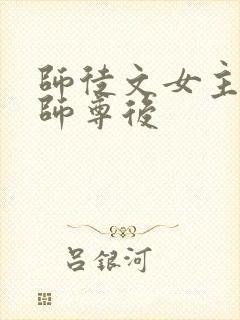 師徒文女主
師尊後
呂銀河